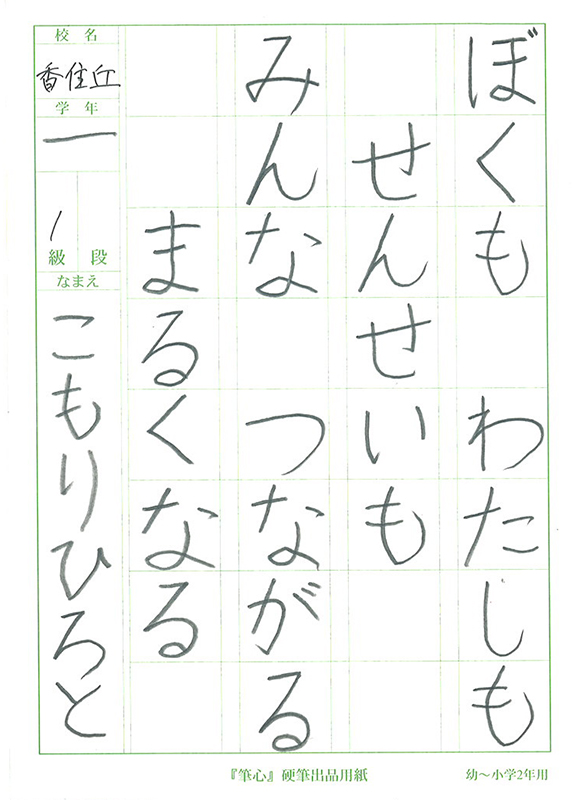 ぼくも わたしも
せんせいも
みんな つながる
まるくなる
校名
香住丘
学年
一
級 段
1
なまえ
こもりひろと
『筆心』硬筆出品用紙
幼～小学2年用